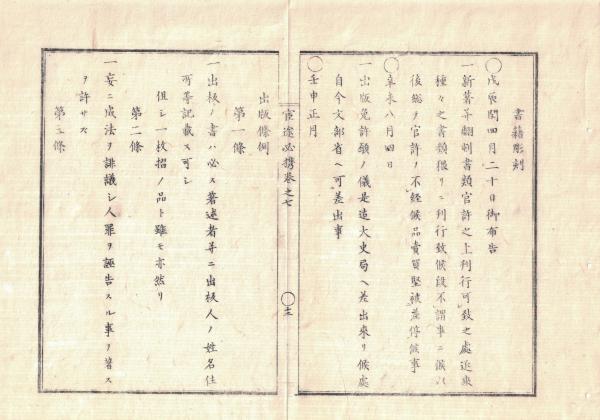 書籍彫刻
○戊辰閏四月二十日御布告
一新著并翻刻書類官許之上刊行可致之處近來
種々之書類猥リニ刊行致候段不謂事ニ候以
後総テ官許ノ不經候品賣買堅被差停候事
○辛未八月四日
一出版免許願ノ儀是迠大史局ヘ差出來リ候處
自今文部省ヘ可差出事
○壬申正月
宦途必携巻之七
○十二
出版條例
第一條
一出板ノ書ハ必ス著述者并ニ出板人ノ姓名住
所等記載ス可シ
但シ一枚摺ノ品ト雖モ亦然リ
第二條
一妄ニ成法ヲ誹議シ人罪ヲ誣告スル事ヲ著ス
ヲ許サス
第三條